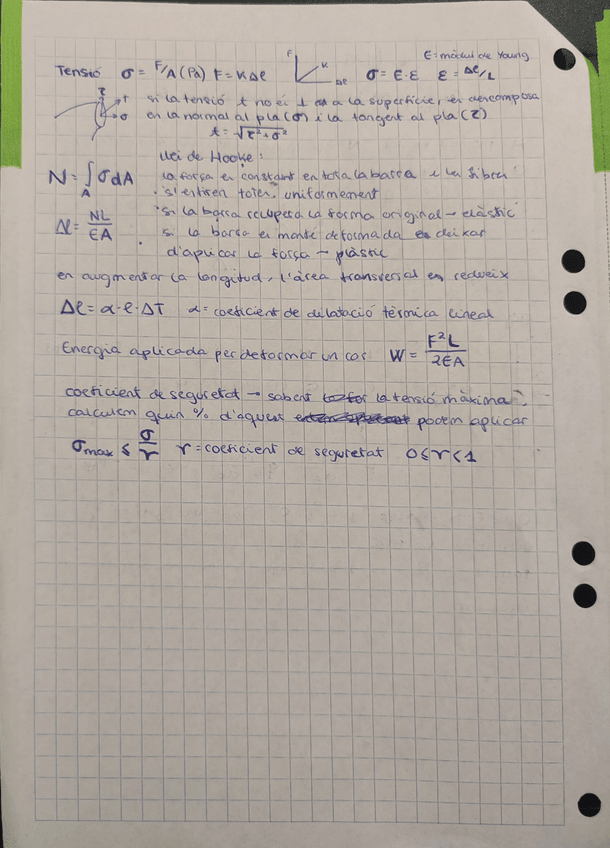 E=mòdul de Young
Tensió σ = F/A (Pa) F = KΔl F K Δl σ = E·ε ε = Δl/L
τ t σ
si la tensió t no és ⊥ a la superfície, es descomposa
en la normal al pla (σ) i la tangent al pla (τ)
t = √τ²+σ²
Llei de Hooke:
N = ∫A σdA
la força és constant en tota la barra i les fibres
s'estiren totes uniformement
Δl = NL/EA
·si la barra recupera la forma original → elàstic
· si la barra es manté deformada en deixar
d'aplicar la força → plàstic
en augmentar la longitud, l'àrea transversal es redueix
Δl = α·l·ΔT α = coeficient de dilatació tèrmica lineal
Energia aplicada per deformar un cos W = F²L/2EA
coeficient de seguretat → sabent la tensió màxima
calculem quin % d'aquest podem aplicar
σmax ≤ σ/r r = coeficient de seguretat 0≤r<1